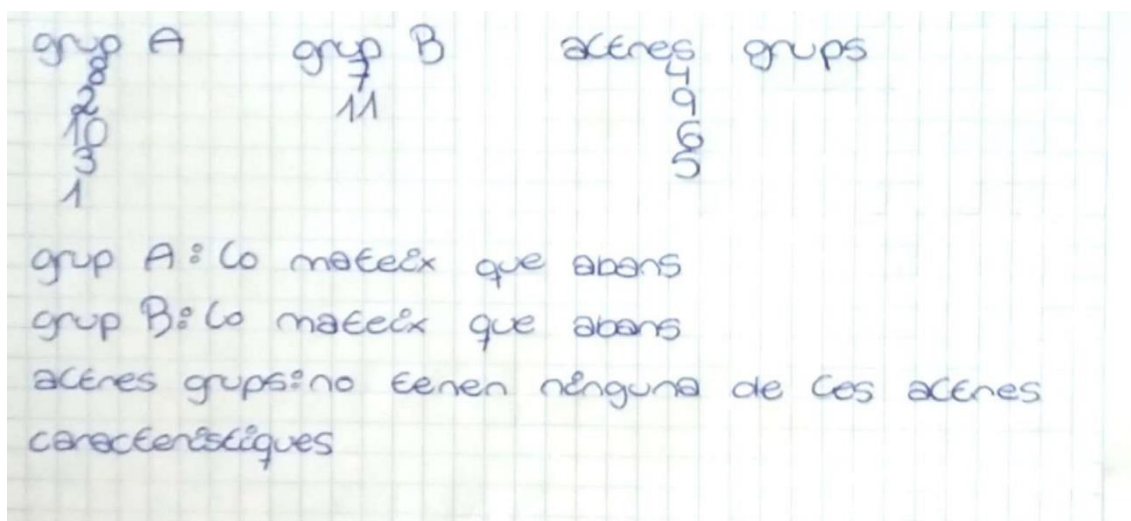 grup A grup B altres grups
8 7 4
2 11 9
10 6
3 5
1
grup A: lo mateix que abans
grup B: lo mateix que abans
altres grups: no tenen ninguna de les altres
característiques